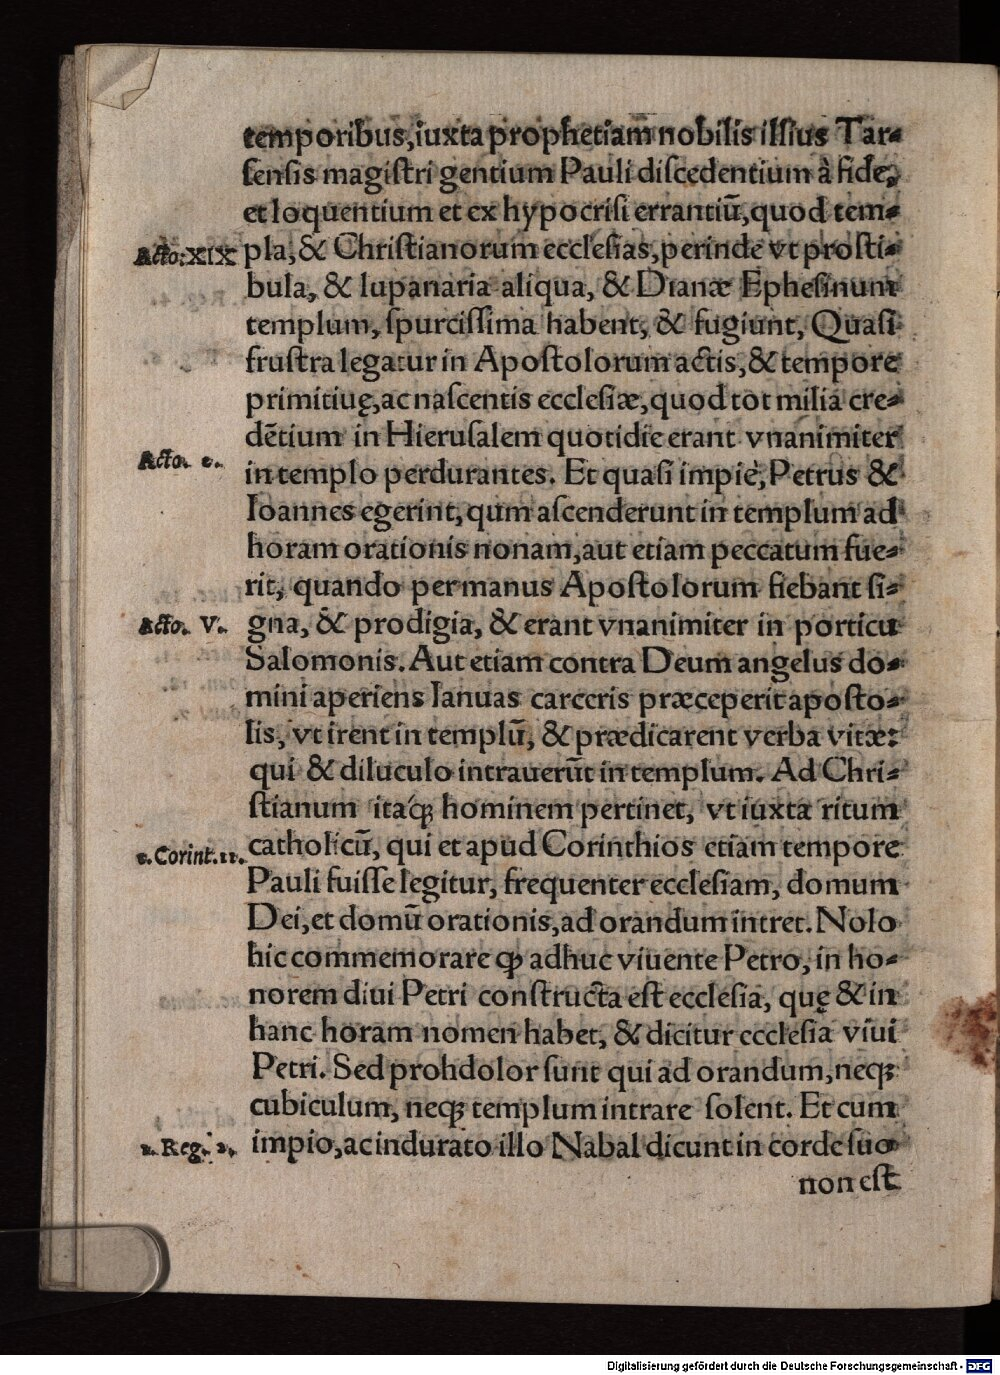 temporibus,iuxta prophetiam nobilis illius Tar⸗
ſenſis magiſtri gentium Pauli diſcedentium à fide,
et loquentium et ex hypocriſi errantiū,quod tem⸗
Acto:XIX pla,& Chriſtianorum eccleſias,perinde vt proſti⸗
bula, & lupanaria aliqua, & Dianæ Epheſinum
templum, ſpurciſſima habent, & fugiunt, Quaſi
fruſtra legatur in Apoſtolorum actis,& tempore
primitiuę,ac naſcentis eccleſiæ,quod tot milia cre⸗
dētium in Hieruſalem quotidie erant vnanimiter
Acto. 2. in templo perdurantes. Et quaſi impiè, Petrus &
Ioannes egerint,qum aſcenderunt in templum ad
horam orationis nonam,aut etiam peccatum fue⸗
rit, quando per manus Apoſtolorum fiebant ſi⸗
Acto. V. gna, & prodigia, & erant vnanimiter in porticu
Salomonis. Aut etiam contra Deum angelus do⸗
mini aperiens Ianuas carceris præceperit apoſto⸗
lis, vt irent in templū, & prædicarent verba vitæ:
qui & diluculo intrauerūt in templum. Ad Chri⸗
ſtianum itaqꝫ hominem pertinet, vt iuxta ritum
1.Corint.11. catholicū, qui et apud Corinthios etiam tempore
Pauli fuiſſe legitur, frequenter eccleſiam, domum
Dei,et domū orationis,ad orandum intret. Nolo
hic commemorare ꝙ adhuc viuente Petro, in ho⸗
norem diui Petri conſtructa eſt eccleſia, quę & in
hanc horam nomen habet, & dicitur eccleſia viui
Petri. Sed prohdolor ſunt qui ad orandum,neqꝫ
cubiculum, neqꝫ templum intrare ſolent. Et cum
Reg. impio,ac indurato illo Nabal dicunt in corde ſuo
non eſt
Digitalisierung gefördert durch die Deutsche Forschungsgemeinschaft - DFG